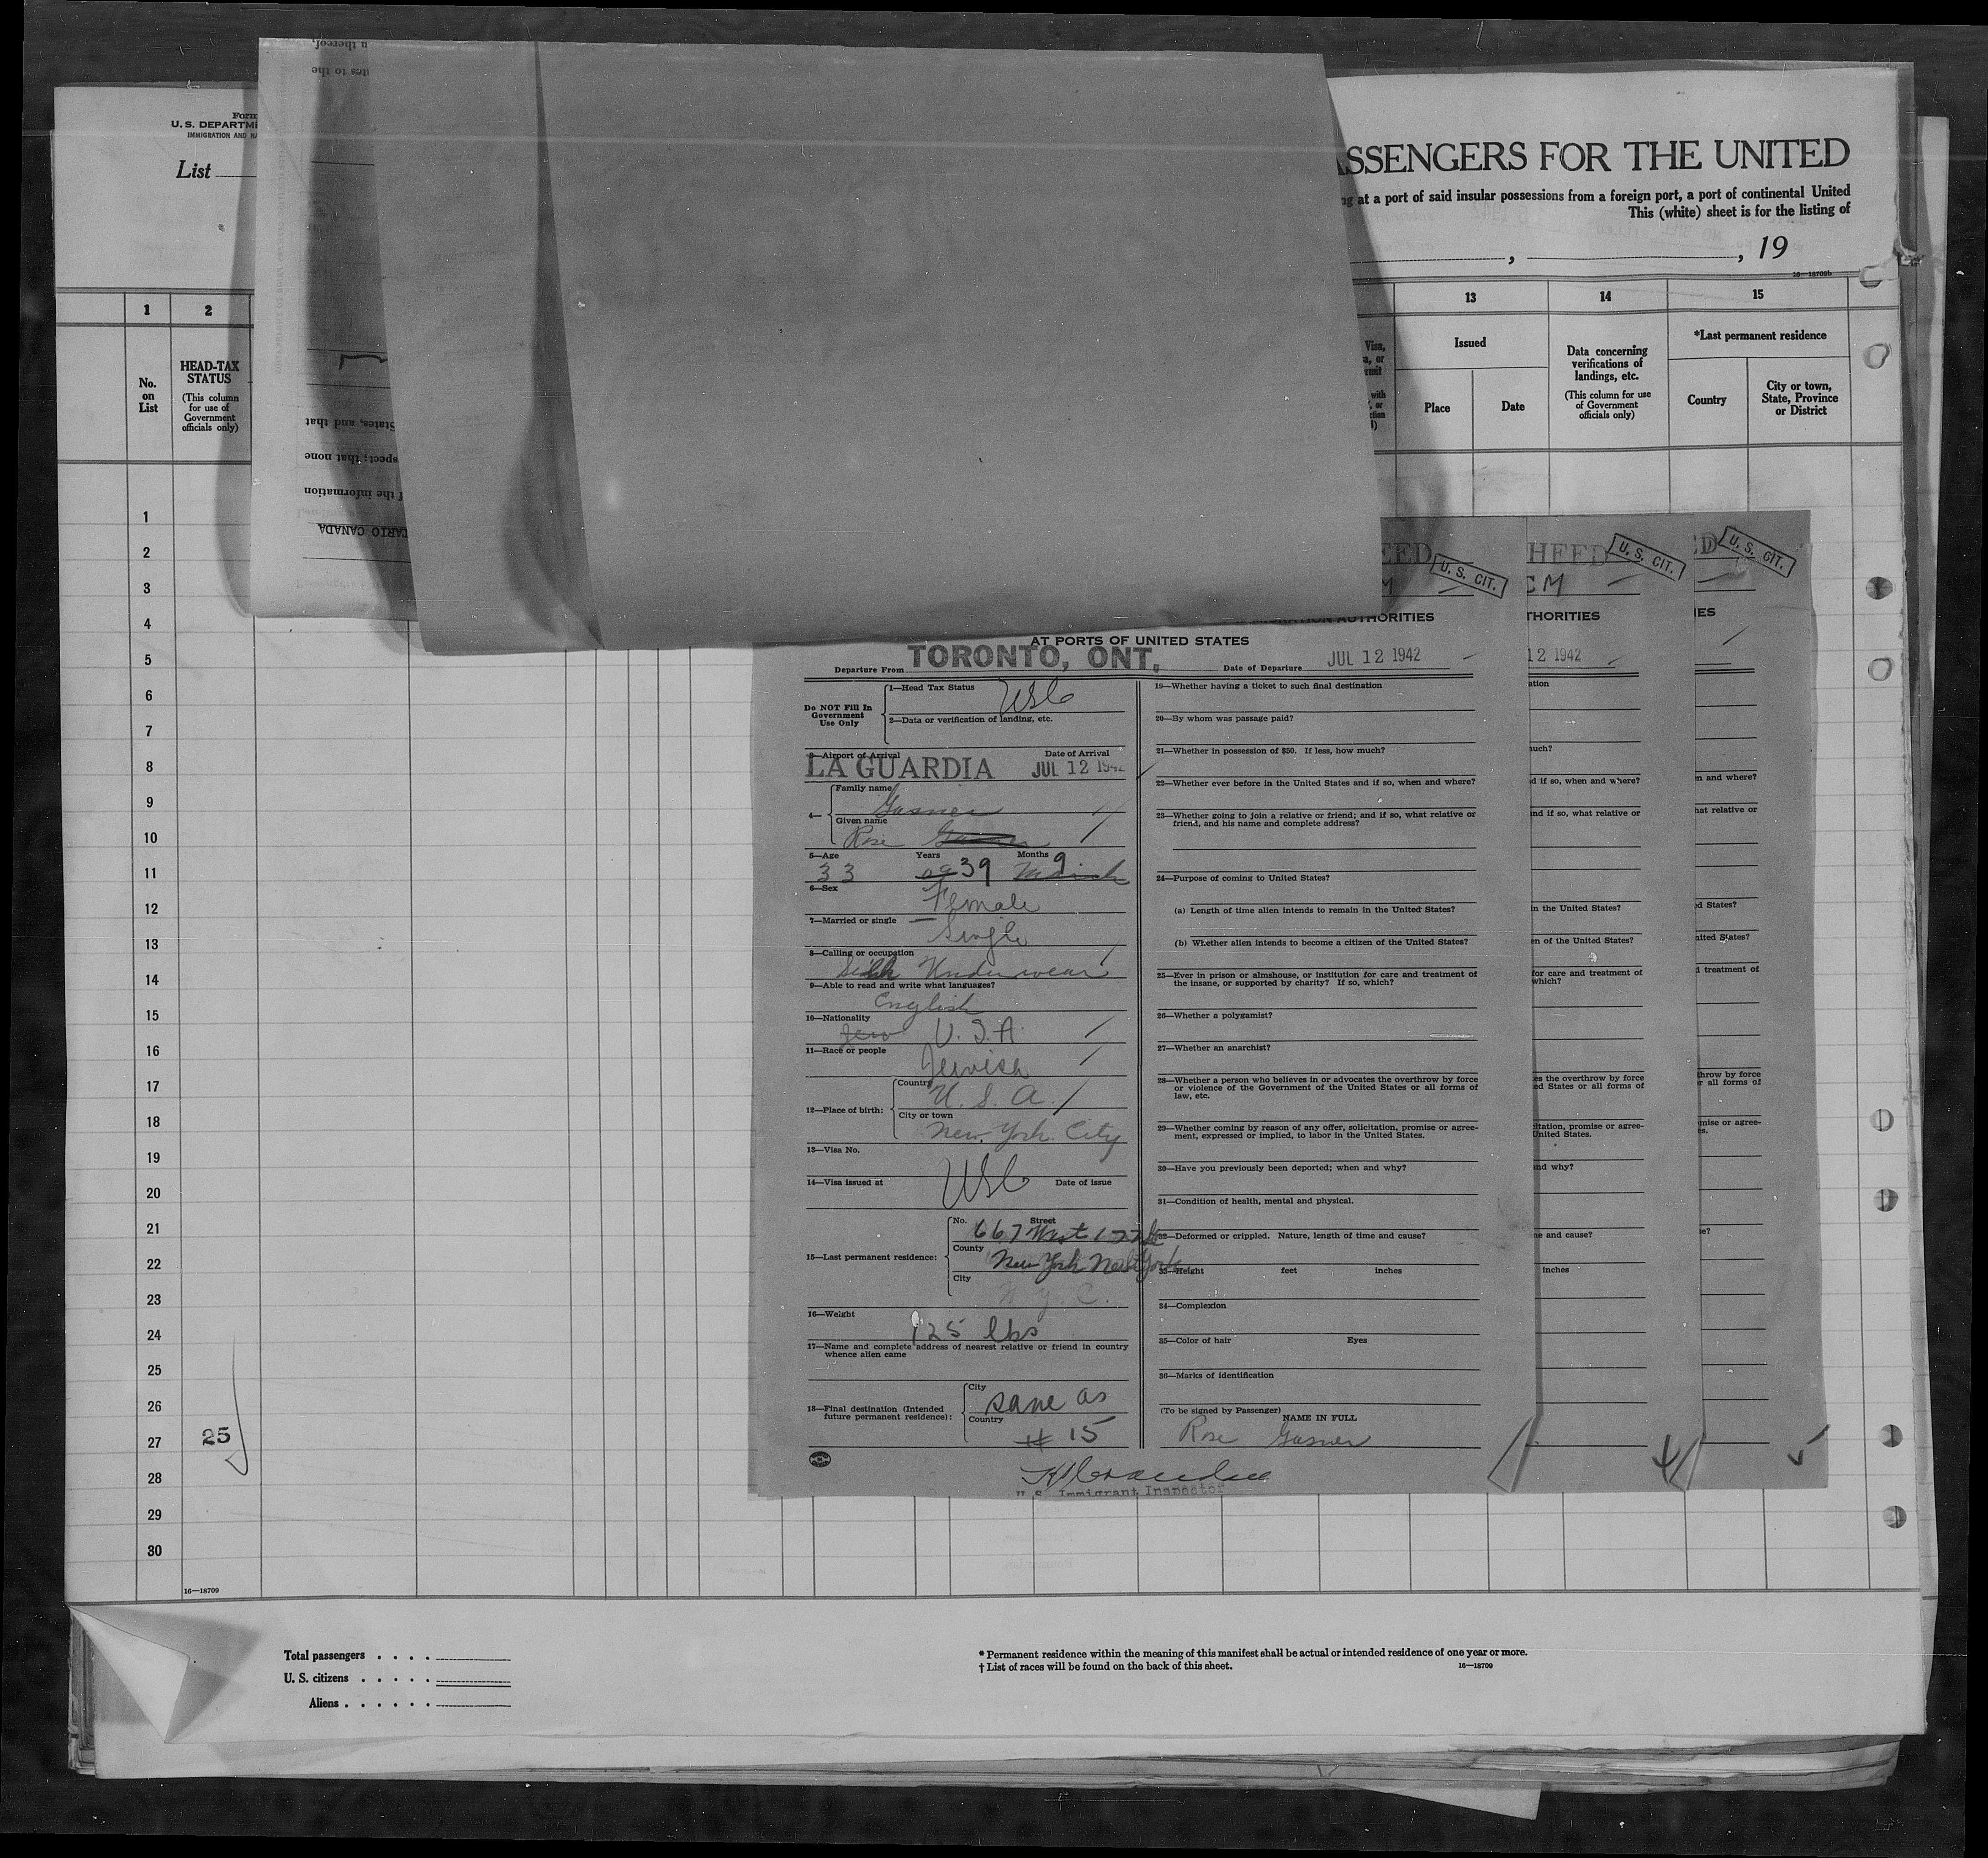 Form
U. S. DEPARTM
IMMIGRATION AND NA
List
ASSENGERS FOR THE UNITED
ng at a port of said insular possessions from a foreign port, a port of continental United
This (white) sheet is for the listing of
, , 19
16—18709b
1 2 13 14 15
No. on List
HEAD-TAX STATUS
(This column for use of Government officials only)
Visa,
Issued
Place Date
Data concerning verifications of landings, etc.
(This column for use of Government officials only)
*Last permanent residence
Country
City or town, State, Province or District
n thereof,
ites to the
States, and that
spect; that none
f the information
TARIO CANADA
1
2
3
4
5
6
7
8
9
10
11
12
13
14
15
16
17
18
19
20
21
22
23
24
25
26
27
28
29
30
25
16—18709
EED U. S. CIT.
M
HEED U. S. CIT.
CM
ED U. S. CIT.
AUTHORITIES
THORITIES
IES
AT PORTS OF UNITED STATES
Departure From TORONTO, ONT. Date of Departure JUL 12 1942
12 1942
Do NOT Fill In Government Use Only
1—Head Tax Status USC
2—Data or verification of landing, etc.
3—Airport of Arrival Date of Arrival
LA GUARDIA JUL 12 1942
4—
Family name
Gasner
Given name
Rose
5—Age Years Months
33 39 9
6—Sex
Female
7—Married or single
Single
8—Calling or occupation
Silk Underwear
9—Able to read and write what languages?
English
10—Nationality
Jew U. S. A.
11—Race or people
Jewish
12—Place of birth:
Country
U. S. A.
City or town
New York City
13—Visa No.
USC
14—Visa issued at Date of issue
15—Last permanent residence:
No. Street
667 West 177 St
County
New York New York
City
N. Y. C.
16—Weight
125 lbs
17—Name and complete address of nearest relative or friend in country
whence alien came
18—Final destination (Intended
future permanent residence):
City
same as
Country
# 15
19—Whether having a ticket to such final destination
20—By whom was passage paid?
21—Whether in possession of $50. If less, how much?
22—Whether ever before in the United States and if so, when and where?
23—Whether going to join a relative or friend; and if so, what relative or
friend, and his name and complete address?
24—Purpose of coming to United States?
(a) Length of time alien intends to remain in the United States?
(b) Whether alien intends to become a citizen of the United States?
25—Ever in prison or almshouse, or institution for care and treatment of
the insane, or supported by charity? If so, which?
26—Whether a polygamist?
27—Whether an anarchist?
28—Whether a person who believes in or advocates the overthrow by force
or violence of the Government of the United States or all forms of
law, etc.
29—Whether coming by reason of any offer, solicitation, promise or agree-
ment, expressed or implied, to labor in the United States.
30—Have you previously been deported; when and why?
31—Condition of health, mental and physical.
32—Deformed or crippled. Nature, length of time and cause?
33—Height feet inches
34—Complexion
35—Color of hair Eyes
36—Marks of identification
(To be signed by Passenger)
NAME IN FULL
Rose Gasner
U. S. Immigrant Inspector
ation
much?
d if so, when and where?
and if so, what relative or
in the United States?
en of the United States?
for care and treatment of
which?
es the overthrow by force
ed States or all forms of
itation, promise or agree-
United States.
nd why?
ne and cause?
inches
n and where?
hat relative or
ed States?
nited States?
d treatment of
throw by force
r all forms of
mise or agree-
es.
e?
Total passengers . . . .
U. S. citizens . . . . .
Aliens . . . . . .
* Permanent residence within the meaning of this manifest shall be actual or intended residence of one year or more.
† List of races will be found on the back of this sheet.
16—18709